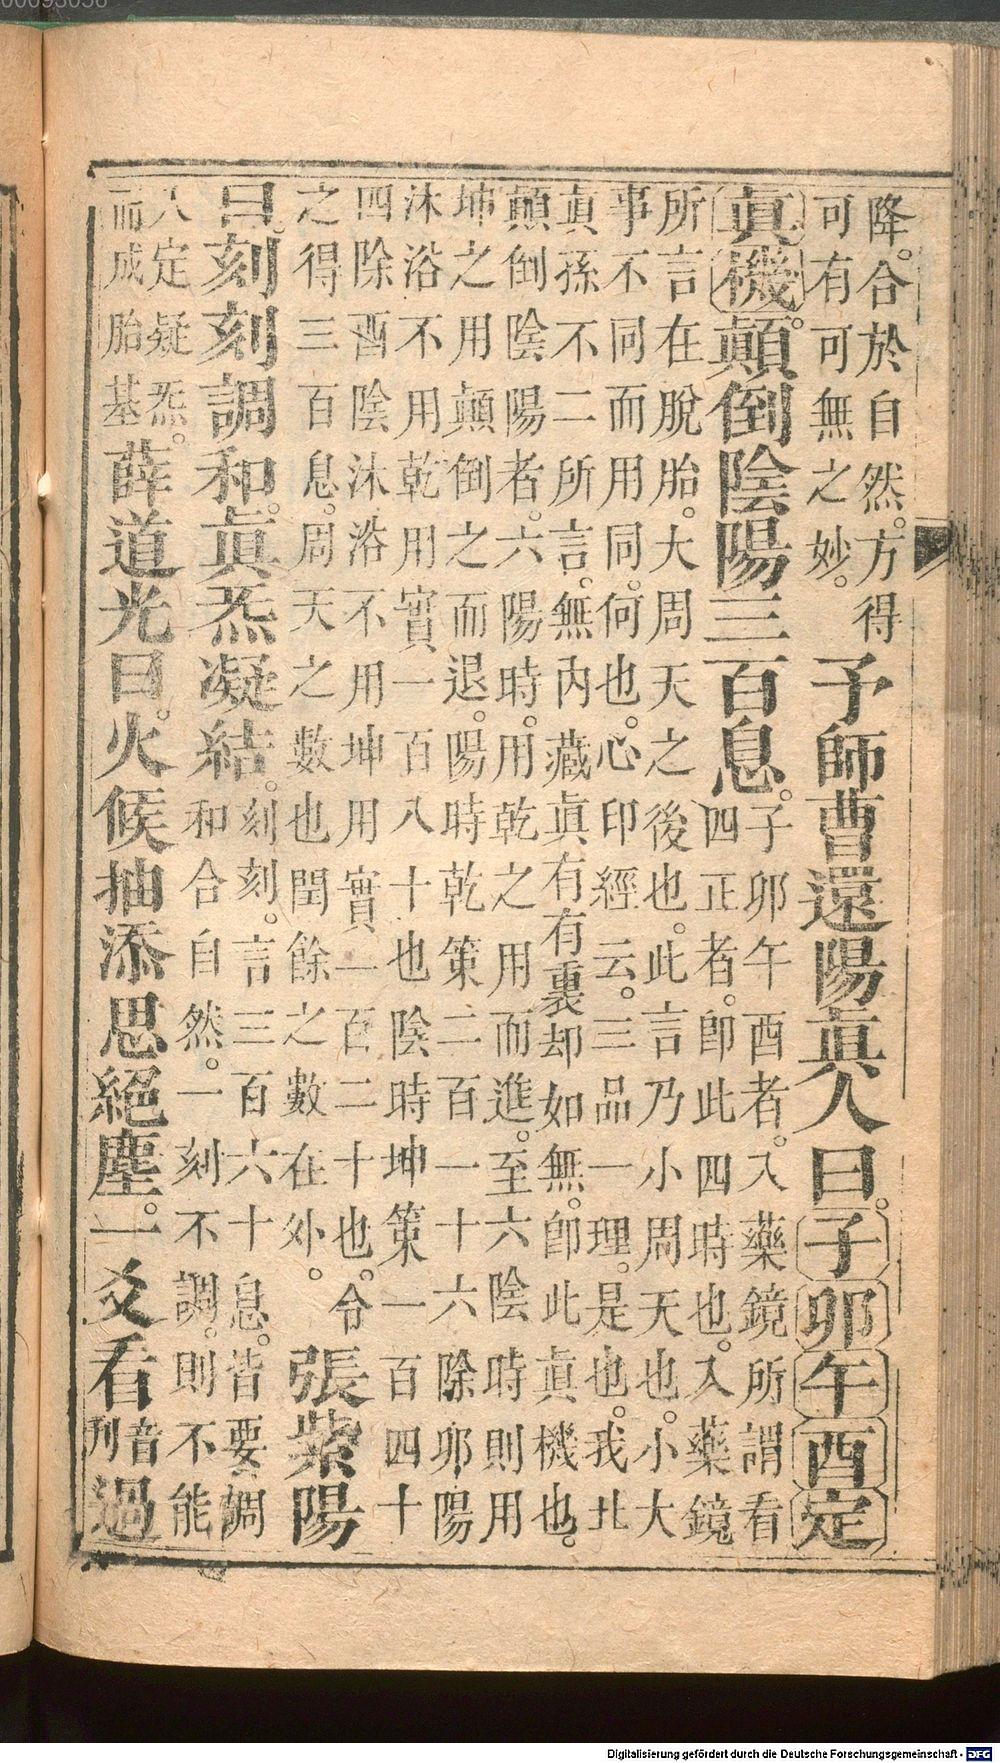 降。合於自然。方得
可有可無之妙。
予師曹還陽眞人曰。子卯午酉定
眞機。顛倒陰陽三百息。
子卯午酉者。入藥鏡所謂看
四正者。卽此四時也。入藥鏡
所言在脫胎。大周天之後也。此言乃小周天也。小大
事不同而用同。何也。心印經云。三品一理。是也。我北
眞孫不二所言。無內藏眞有有裏却如無。卽此眞機也。
顛倒陰陽者。六陽時。用乾之用而進。至六陰時則用
坤之用顛倒之而退。陽時乾策二百一十六除卯陽
沐浴不用乾用實一百八十也陰時坤策一百四十
四除酉陰沐浴不用坤用實一百二十也。合
之得三百息。周天之數也閏餘之數在外。
張紫陽
曰。刻刻調和。眞炁凝結。
刻刻。言三百六十息。皆要調
和合自然。一刻不調。則不能
入定疑炁。
而成胎基
薛道光曰。火候抽添思絕塵。一爻看
音
刊
過
Digitalisierung gefördert durch die Deutsche Forschungsgemeinschaft - DFG